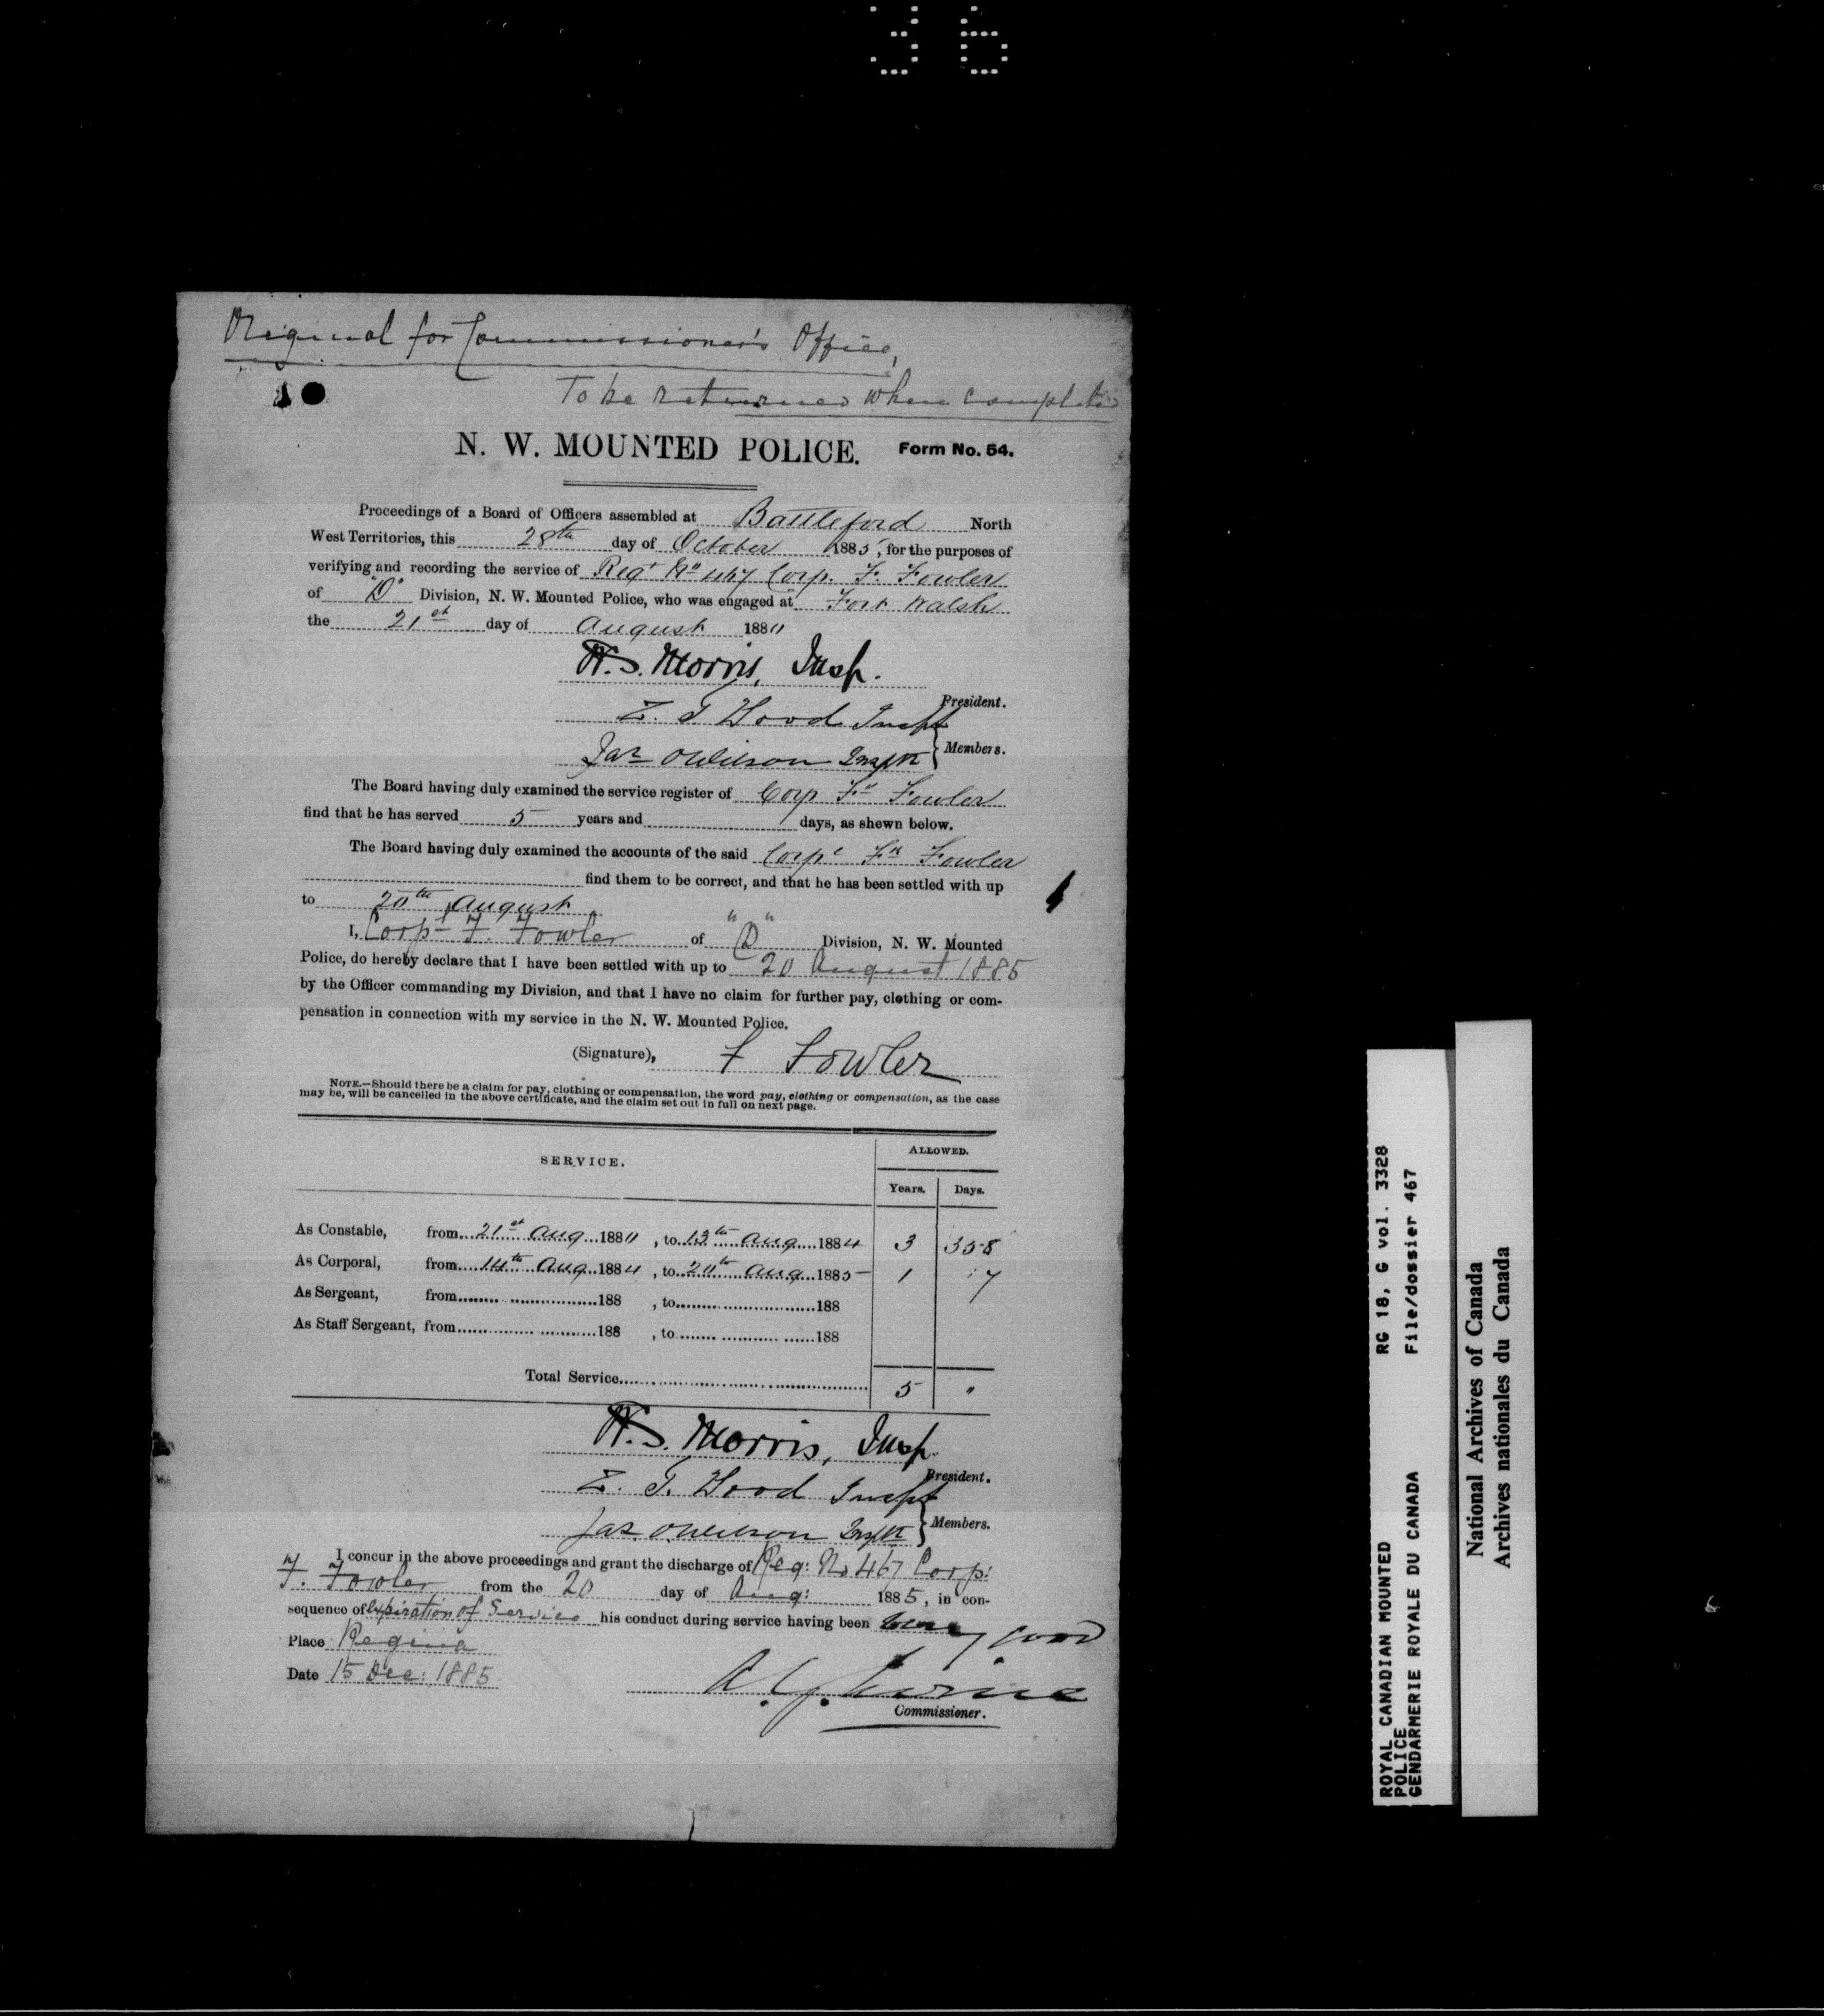 36
Original for Commissioner's Office,
To be returned when completed
N. W. MOUNTED POLICE. Form No. 54.
Proceedings of a Board of Officers assembled at Battleford North
West Territories, this 28th day of October 1885, for the purposes of
verifying and recording the service of Regt No 467 Corp. F. Fowler
of "D" Division, N. W. Mounted Police, who was engaged at Fort Walsh
the 21st day of August 1880
W.S. Morris, Insp.
President.
Z. T. Wood Inspt
Jas O Wilson Inspr } Members.
The Board having duly examined the service register of Corp Fk Fowler
find that he has served 5 years and days, as shewn below.
The Board having duly examined the accounts of the said Corpl Fk Fowler
find them to be correct, and that he has been settled with up
to 20th August
I, Corpl F. Fowler of "D" Division, N. W. Mounted
Police, do hereby declare that I have been settled with up to 20 August 1885
by the Officer commanding my Division, and that I have no claim for further pay, clothing or com-
pensation in connection with my service in the N. W. Mounted Police.
(Signature), F Fowler
NOTE.—Should there be a claim for pay, clothing or compensation, the word pay, clothing or compensation, as the case
may be, will be cancelled in the above certificate, and the claim set out in full on next page.
SERVICE. ALLOWED.
Years. Days.
As Constable, from 21st Aug 1880, to 13th Aug 1884 3 358
As Corporal, from 14th Aug 1884, to 20th Aug 1885 1 7
As Sergeant, from 188 , to 188
As Staff Sergeant, from 188 , to 188
Total Service 5 "
W.S. Morris, Insp.
President.
Z. T. Wood Inspt
Jas. O. Wilson Inspr } Members.
I concur in the above proceedings and grant the discharge of Reg: No 467 Corp:
F. Fowler from the 20 day of Aug: 1885, in con-
sequence of Expiration of Service his conduct during service having been good
Place Regina
Date 15 Dec: 1885
Commissioner.
ROYAL CANADIAN MOUNTED RG 18, G vol. 3328
POLICE
GENDARMERIE ROYALE DU CANADA File/dossier 467
National Archives of Canada
Archives nationales du Canada